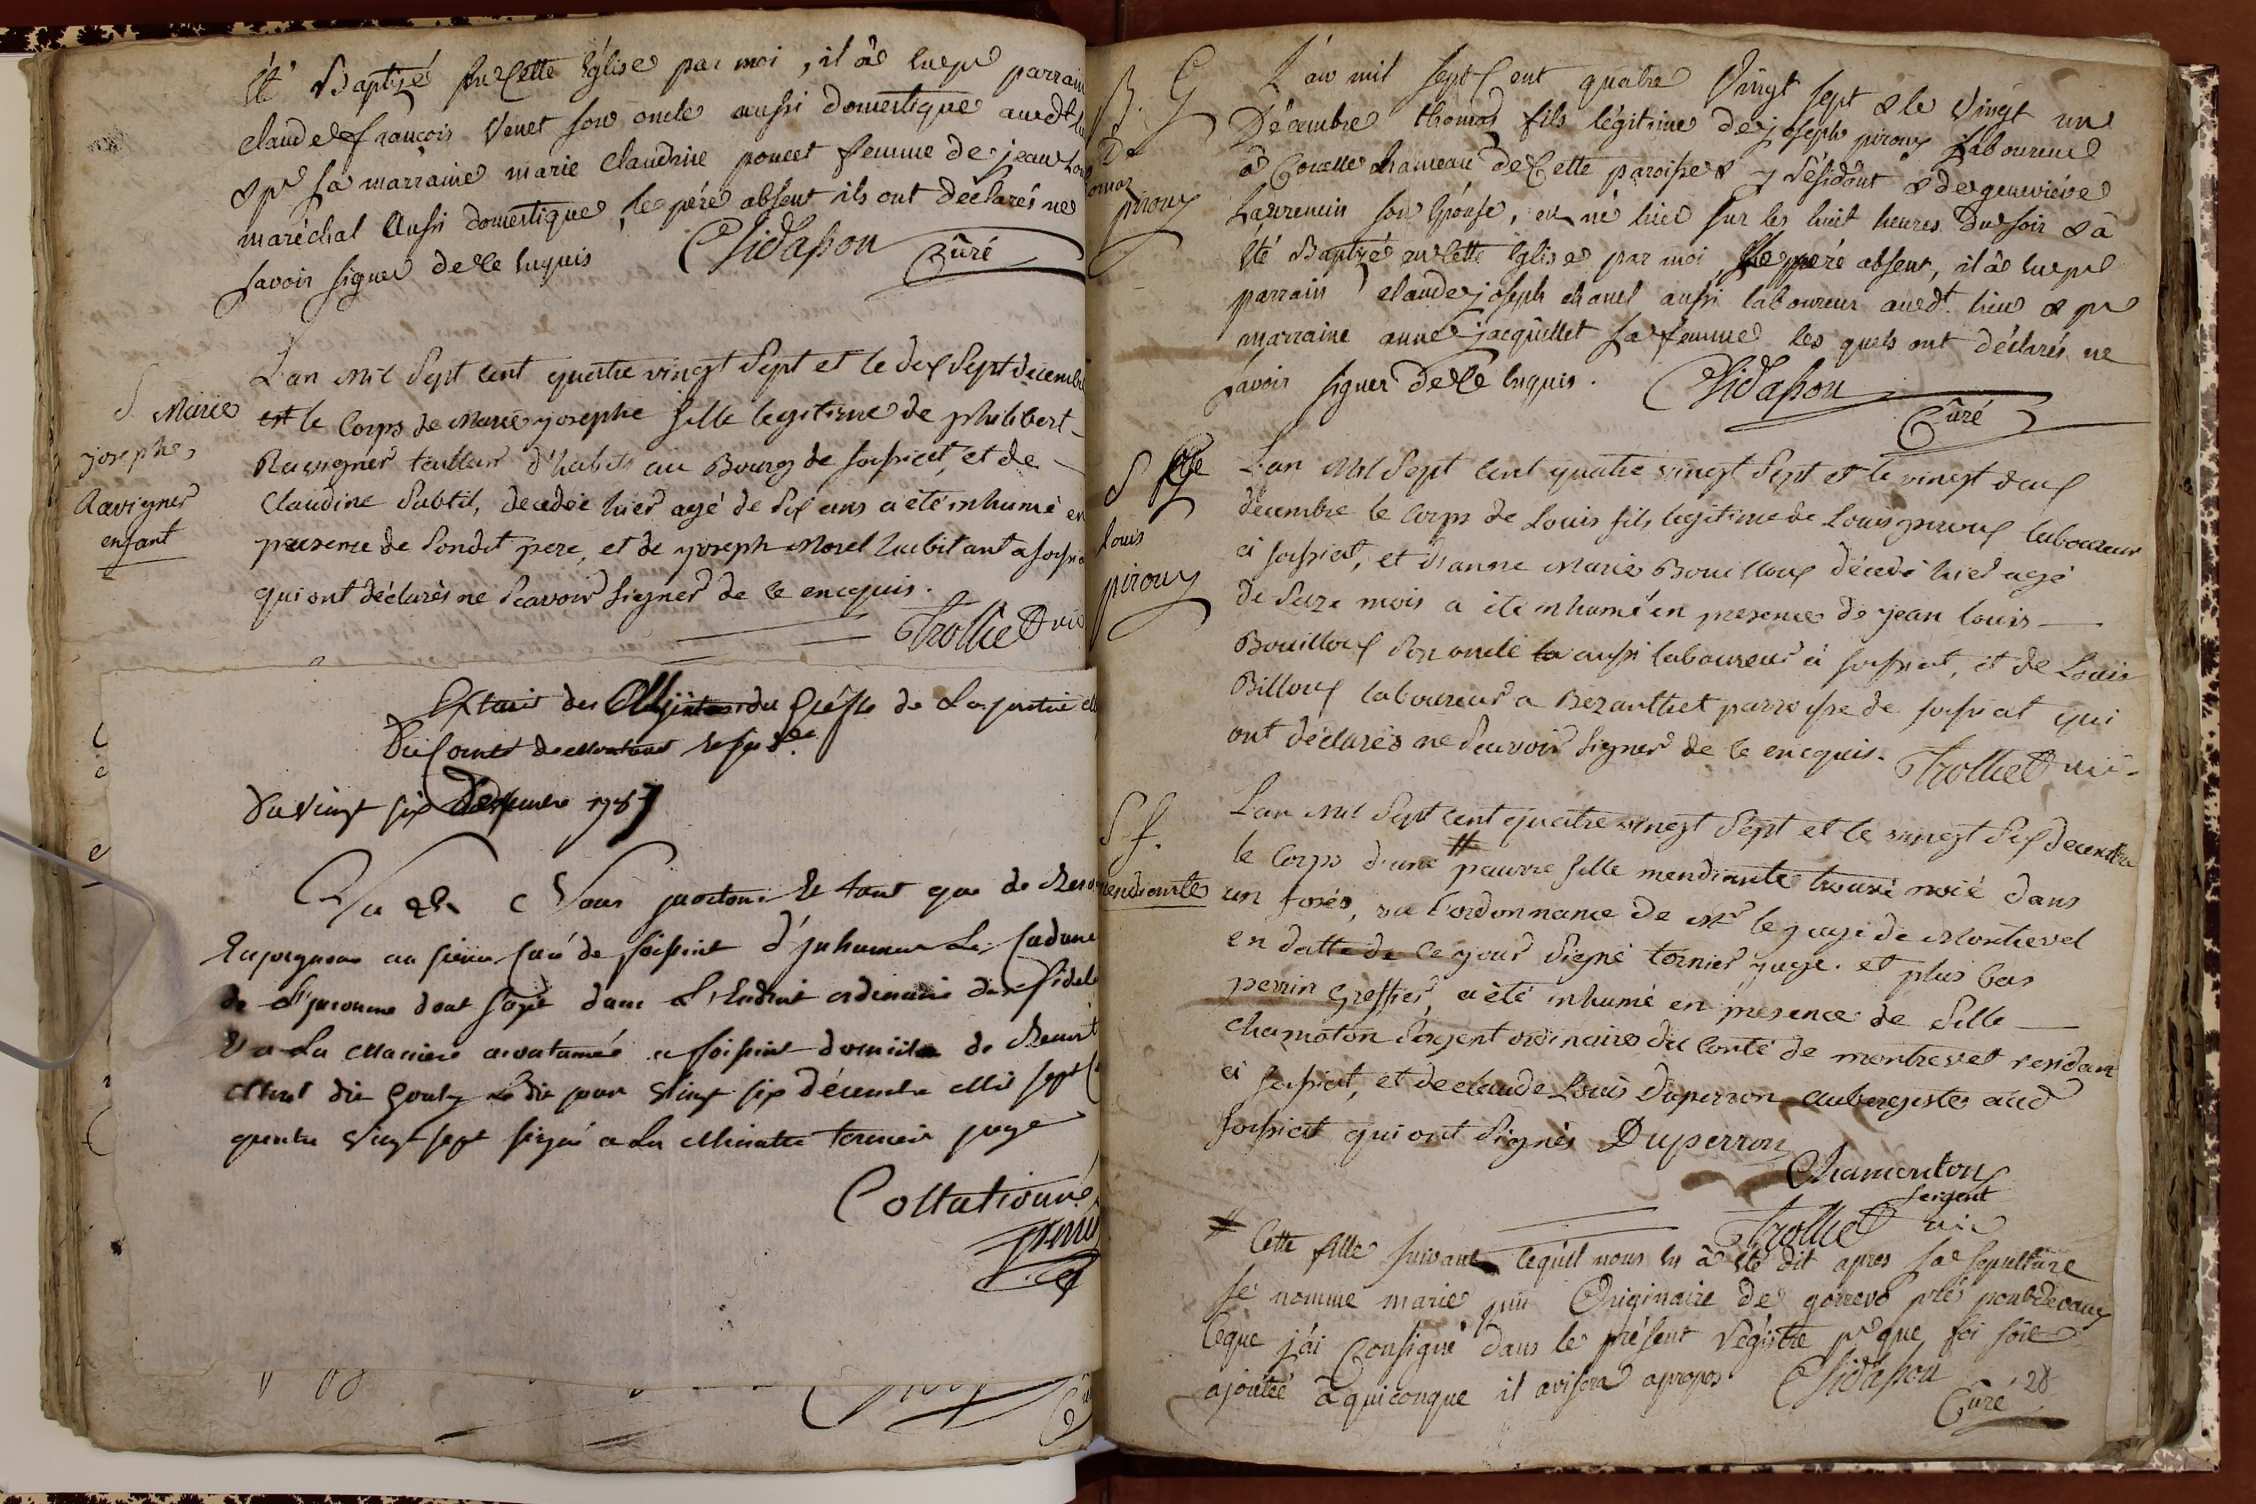 été Baptizé en cette église par moi, il a eu pr parrain
claude françois Venet son oncle aussi domestique audt lieu
& pr sa marraine marie claudine poncet femme de jean
maréchal aussi domestique, le père absent ils ont déclarés ne
savoir signer de ce enquis Chidasson Curé
S. Marie
josephe,
Ravigner
enfant
L'an Mil Sept cent quatre vingt Sept et le dix Sept decembre
est le Corps de Marie josephe fille legitime de philibert
Ravigner tailleur d'habits au Bourg de foissiat, et de
Claudine Subtil, decedée hier agé de Six ans a été inhumé en
presence de Sondit pere, et de joseph Morel habitant a foissiat
qui ont déclarés ne Scavoir Signer de ce encquis.
Trolliet vic
Extrait des Minutes du Greffe de La justice
Du Comté de montrevel
Du vingt six Décembre 1787
Vu Nous
Enjoignons au sieur Curé de foissiat d'jnhumer Le Cadavre
de dont s'agit dans L'Endroit ordinaire des fidels
Et a La Maniere accoutumée a foissiat domicile de Benoit
Morel dit ce jour vingt six décembre Mil sept
quatre vingt sept signé a La Minutte tornier juge
Collationné
B. G
De
omas
piroux
L'an mil sept Cent quatre Vingt sept & le Vingt un
Décembre thomas fils légitime de joseph piroux Laboureur
à hameau de Cette paroisse & y Résidant & de geneviéve
Laurencin son Epouse, est né hier sur les huit heures du soir & a
été Baptizé en cette Eglise par moi, le père absent, il a eu pr
parrain claude joseph chanel aussi laboureur audt. lieu & pr
marraine anne jacquillet sa femme les quels ont déclarés ne
savoir signer de ce enquis. Chidasson
Curé
S
louis
piroux
L'an Mil Sept cent quatre vingt Sept et le vingt deux
décembre le Corps de Louis fils legitime de Louis piroux laboureur
à foissiat, et d'anne Marie Bouilloux décedé hier agé
de Seize mois a été inhumé en presence de jean louis
Bouilloux Son oncle aussi laboureur à foissiat, et de Louis
Billoux laboureur a Bezanthet parroisse de foissiat qui
ont déclarés ne Scavoir Signer de ce encquis. Trolliet vic.
S f.
mendiante
L'an Mil Sept cent quatre vingt Sept et le vingt Six decembre
le Corps d'une # pauvre fille mendiante trouvé noié dans
un fossés, vu l'ordonnance de Mr le juge de Montrevel
en datte de ce jour Signé tornier juge. et plus bas
perrin Greffier, a été inhumé en presence de Sille
Chamoton Sergent ordinaire du Conté de montrevel residant
à foissiat, et de claude Louis Duperron aubergiste aud
foissiat qui ont Signés Duperron
Chamonton
Sergent
Trolliet vic
# Cette fille suivant ce qu'il nous en a été dit apres sa sepulture
se nomme marie Originaire de gorrevo prés pontdevaux
ce que j'ai Consigné dans le présent Régistre pr que foi soit
ajoutée à quiconque il avisera apropos Chidasson
Curé 28